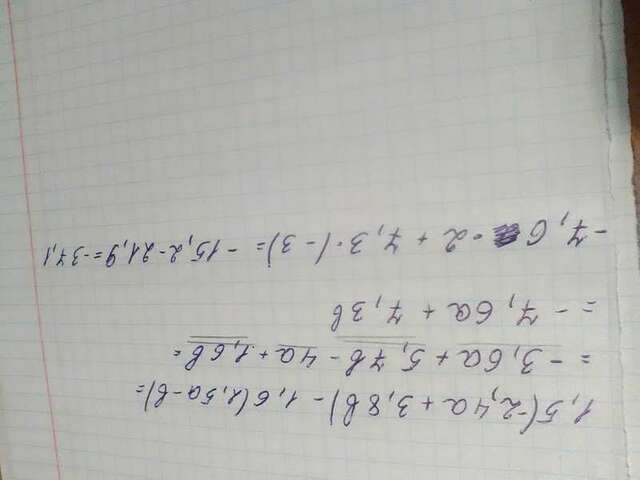 1,5(-2,4a+3,8b)-1,6(2,5a-b)=
=-3,6a+5,7b-4a+1,6b=
=-7,6a+7,3b
-7,6·2+7,3·(-3)=-15,2-21,9=-37,1